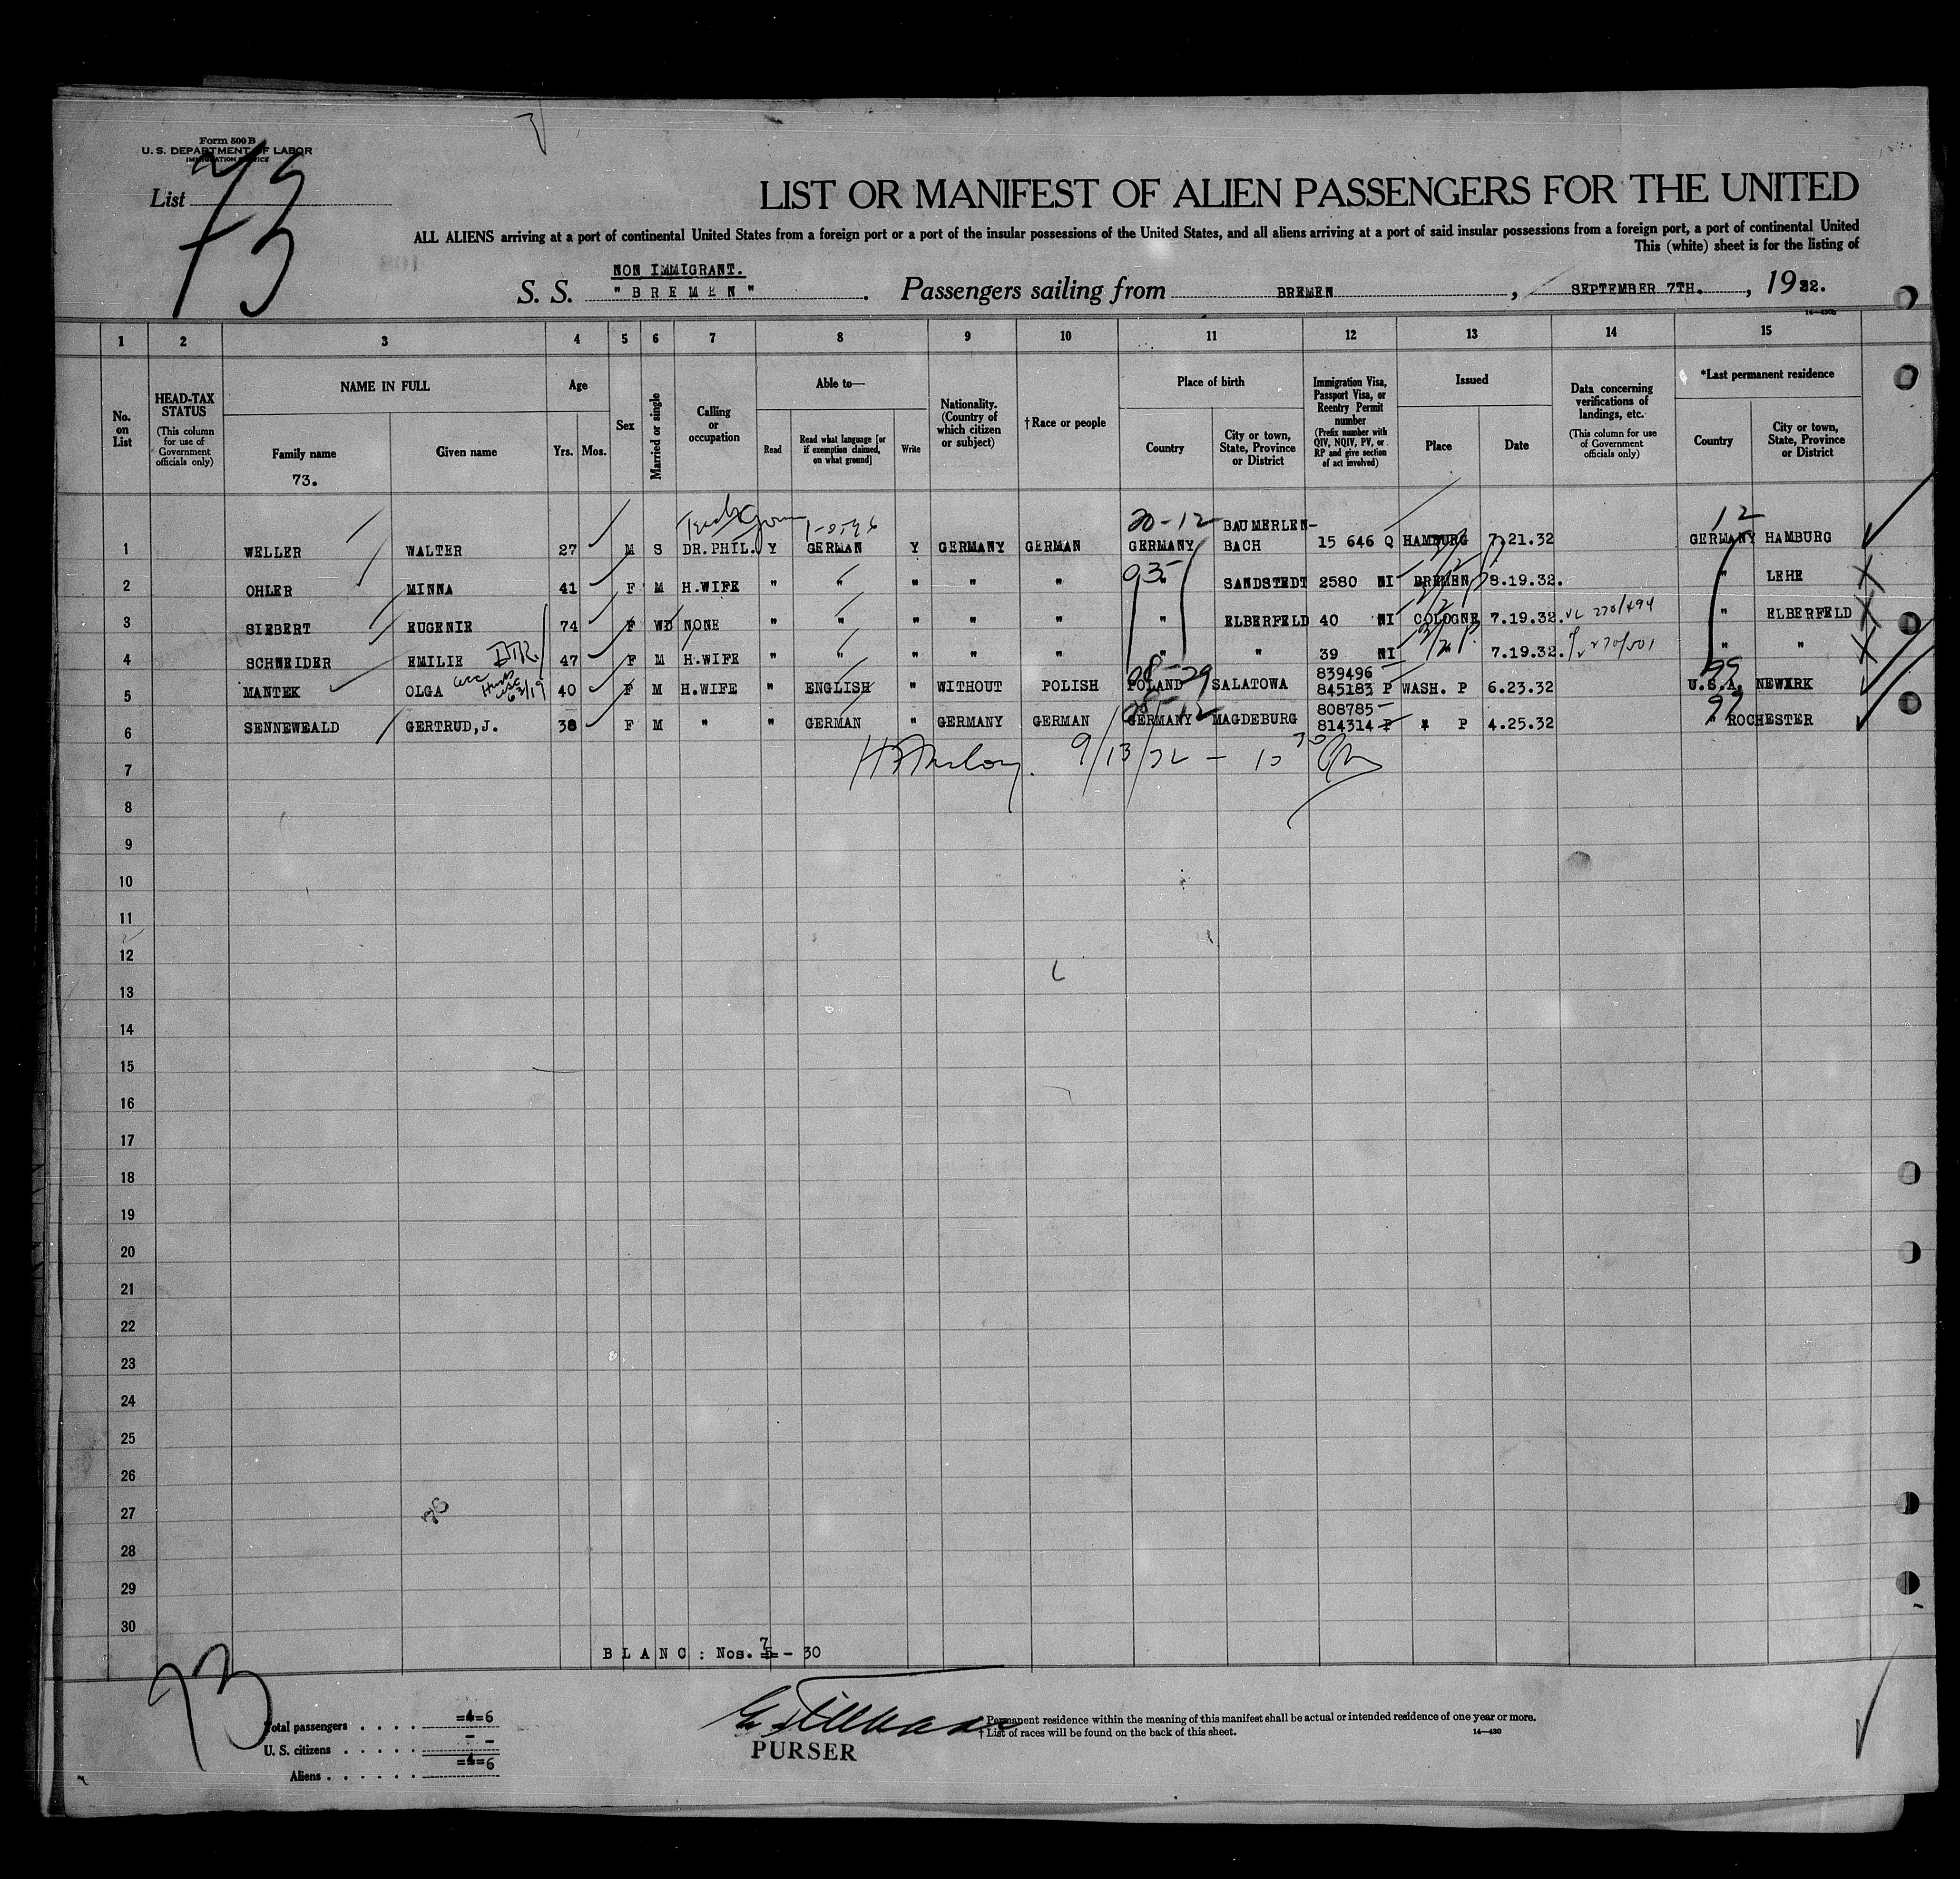 Form 500 B
U. S. DEPARTMENT OF LABOR
IMMIGRATION SERVICE
List 73
LIST OR MANIFEST OF ALIEN PASSENGERS FOR THE UNITED
ALL ALIENS arriving at a port of continental United States from a foreign port or a port of the insular possessions of the United States, and all aliens arriving at a port of said insular possessions from a foreign port, a port of continental United
This (white) sheet is for the listing of
NON IMMIGRANT.
S. S. " B R E M E N " . Passengers sailing from BREMEN , SEPTEMBER 7TH. , 1932.
14—430b
1 2 3 4 5 6 7 8 9 10 11 12 13 14 15
No. on List
HEAD-TAX STATUS (This column for use of Government officials only)
NAME IN FULL
Family name
73.
Given name
Age
Yrs. Mos.
Sex
Married or single
Calling or occupation
Able to—
Read
Read what language [or if exemption claimed, on what ground]
Write
Nationality. (Country of which citizen or subject)
†Race or people
Place of birth
Country
City or town, State, Province or District
Immigration Visa, Passport Visa, or Reentry Permit number (Prefix number with QIV, NQIV, PV, or RP and give section of act involved)
Issued
Place
Date
Data concerning verifications of landings, etc. (This column for use of Government officials only)
*Last permanent residence
Country
City or town, State, Province or District
20-12 BAUMERLEN- 12
1 WELLER WALTER 27 M S DR.PHIL. Y GERMAN Y GERMANY GERMAN GERMANY BACH 15 646 Q HAMBURG 7.21.32 GERMANY HAMBURG
935
2 OHLER MINNA 41 F M H.WIFE " " " " " " SANDSTEDT 2580 NI BREMEN 8.19.32. " LEHE
3 SIEBERT EUGENIE 74 F WD NONE " " " " " " ELBERFELD 40 NI COLOGNE 7.19.32. VL 270/494 " ELBERFELD
4 SCHNEIDER EMILIE 47 F M H.WIFE " " " " " " " 39 NI " 7.19.32. 270/501 " "
839496 99
5 MANTEK OLGA 40 F M H.WIFE " ENGLISH " WITHOUT POLISH POLAND SALATOWA 845183 P WASH. P 6.23.32 U.S.A. NEWARK
808785 97
6 SENNEWEALD GERTRUD,J. 38 F M " " GERMAN " GERMANY GERMAN GERMANY MAGDEBURG 814314 P " P 4.25.32 " ROCHESTER
7 9/13/32 - 10 30
8
9
10
11
12
13
14
15
16
17
18
19
20
21
22
23
24
25
26
27
28
29
30
B L A N C : Nos. 7 5 - 30
73
Total passengers . . . . =4=6
U. S. citizens . . . . . - -
Aliens . . . . . . =4=6
PURSER
* Permanent residence within the meaning of this manifest shall be actual or intended residence of one year or more.
† List of races will be found on the back of this sheet.
14—430